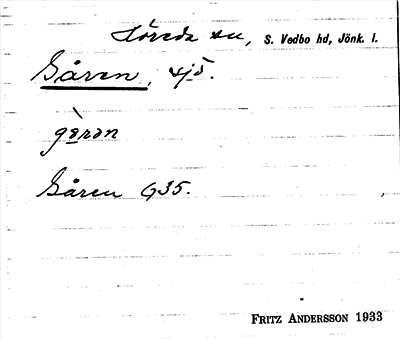 Löreda sn, S. Vedbo hd, Jönk. l.
Gåren, sjö.
gàrən
Gåren G35.
FRITZ ANDERSSON 1933